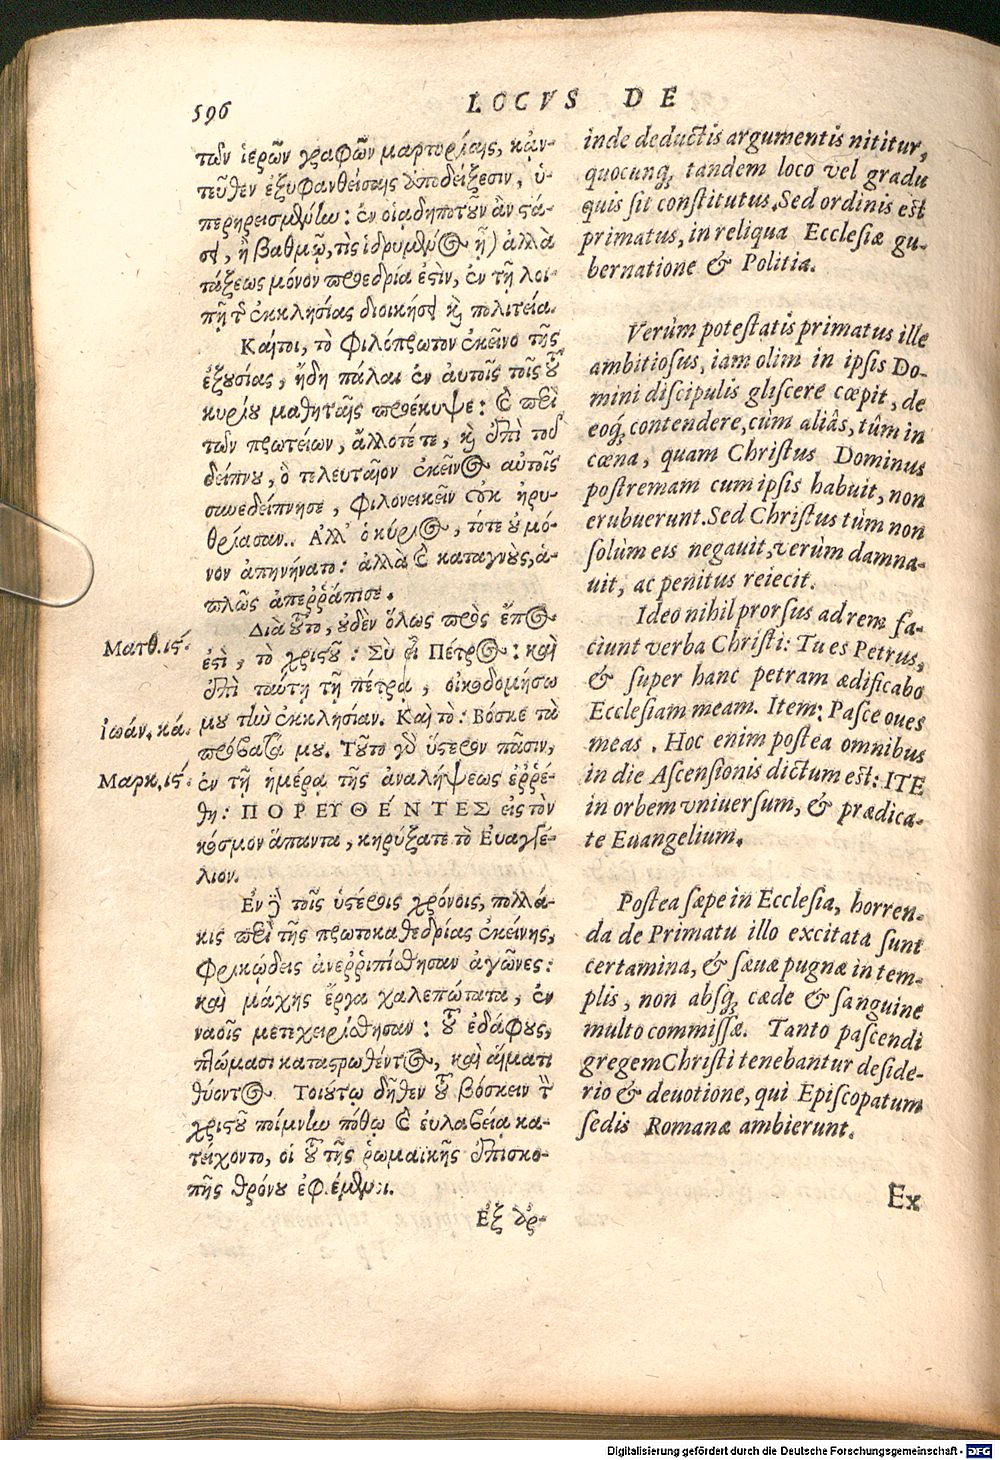 596
LOCVS DE
τῶν ἱερῶν γραφῶν μαρτυρίαις, κἀν-
τεῦθεν ἐξυφανθείσαις ἀποδείξεσιν, ὑ-
περηρεισμένῳ: ἐν οἱᾳδηποτοῦν ἂν τά-
ξει, ἢ βαθμῷ, τὶς ἱδρυμένος ᾖ) ἀλλὰ
τάξεως μόνον προεδρία ἐστὶν, ἐν τῇ λοι-
πῇ τῆς ἐκκλησίας διοικήσει καὶ πολιτεία.
Καίτοι, τὸ φιλόπρωτον ἐκεῖνο τῆς
ἐξουσίας, ἤδη πάλαι ἐν αὐτοῖς τοῖς τοῦ
κυρίου μαθηταῖς προέκυψε: καὶ περὶ
τῶν πρωτείων, ἄλλοτέ τε, καὶ ἐπὶ τοῦ
δείπνου, ὃ τελευταῖον ἐκεῖνος αὐτοῖς
συνεδείπνησε, φιλονεικεῖν οὐκ ἠρυ-
θρίασαν. Ἀλλ' ὁ κύριος, τότε οὐ μό-
νον ἀπηνήνατο: ἀλλὰ καὶ καταγνοὺς, ἁ-
πλῶς ἀπεῤῥάπισε.
Διὰ τοῦτο, οὐδὲν ὅλως πρὸς ἔπος
Ματθ. ιϛ.
ἐστὶ, τὸ χριστοῦ: Σὺ εἶ Πέτρος: καὶ
ἐπὶ ταύτῃ τῇ πέτρᾳ, οἰκοδομήσω
Ἰωάν. κά.
μου τὴν ἐκκλησίαν. Καὶ τὸ: Βόσκε τὰ
πρόβατά μου. Τοῦτο γὰρ ὕστερον πᾶσιν,
Μαρκ. ιϛ.
ἐν τῇ ἡμέρᾳ τῆς ἀναλήψεως ἐῤῥέ-
θη: ΠΟΡΕΥΘΕΝΤΕΣ εἰς τὸν
κόσμον ἅπαντα, κηρύξατε τὸ Εὐαγγέ-
λιον.
Ἐν δὲ τοῖς ὑστέροις χρόνοις, πολλά-
κις περὶ τῆς πρωτοκαθεδρίας ἐκείνης,
φρικώδεις ἀνεῤῥιπίσθησαν ἀγῶνες:
καὶ μάχης ἔργα χαλεπώτατα, ἐν
ναοῖς μετεχειρίσθησαν: τοῦ ἐδάφους,
πτώμασι καταστρωθέντος, καὶ αἵματι
θύοντος. Τοιούτῳ δῆθεν τοῦ βόσκειν τὴν
χριστοῦ ποίμνην πόθῳ καὶ εὐλαβείᾳ κα-
τείχοντο, οἱ τοῦ τῆς ῥωμαϊκῆς ἐπισκο-
πῆς θρόνου ἐφιέμενοι.
Ἐξ ὧν-
inde deductis argumentis nititur,
quocunq; tandem loco vel gradu
quis sit constitutus. Sed ordinis est
primatus, in reliqua Ecclesiæ gu-
bernatione & Politia.
Verùm potestatis primatus ille
ambitiosus, iam olim in ipsis Do-
mini discipulis gliscere cœpit, de
eoq; contendere, cùm aliâs, tûm in
cœna, quam Christus Dominus
postremam cum ipsis habuit, non
erubuerunt. Sed Christus tùm non
solùm eis negauit, verùm damna-
uit, ac penitus reiecit.
Ideo nihil prorsus ad rem fa-
ciunt verba Christi: Tu es Petrus,
& super hanc petram ædificabo
Ecclesiam meam. Item: Pasce oues
meas. Hoc enim postea omnibus
in die Ascensionis dictum est: ITE
in orbem vniuersum, & prædica-
te Euangelium.
Postea sæpe in Ecclesia, horren-
da de Primatu illo excitata sunt
certamina, & sæuæ pugnæ in tem-
plis, non absq; cæde & sanguine
multo commissæ. Tanto pascendi
gregem Christi tenebantur deside-
rio & deuotione, qui Episcopatum
sedis Romanæ ambierunt.
Ex
Digitalisierung gefördert durch die Deutsche Forschungsgemeinschaft - DFG